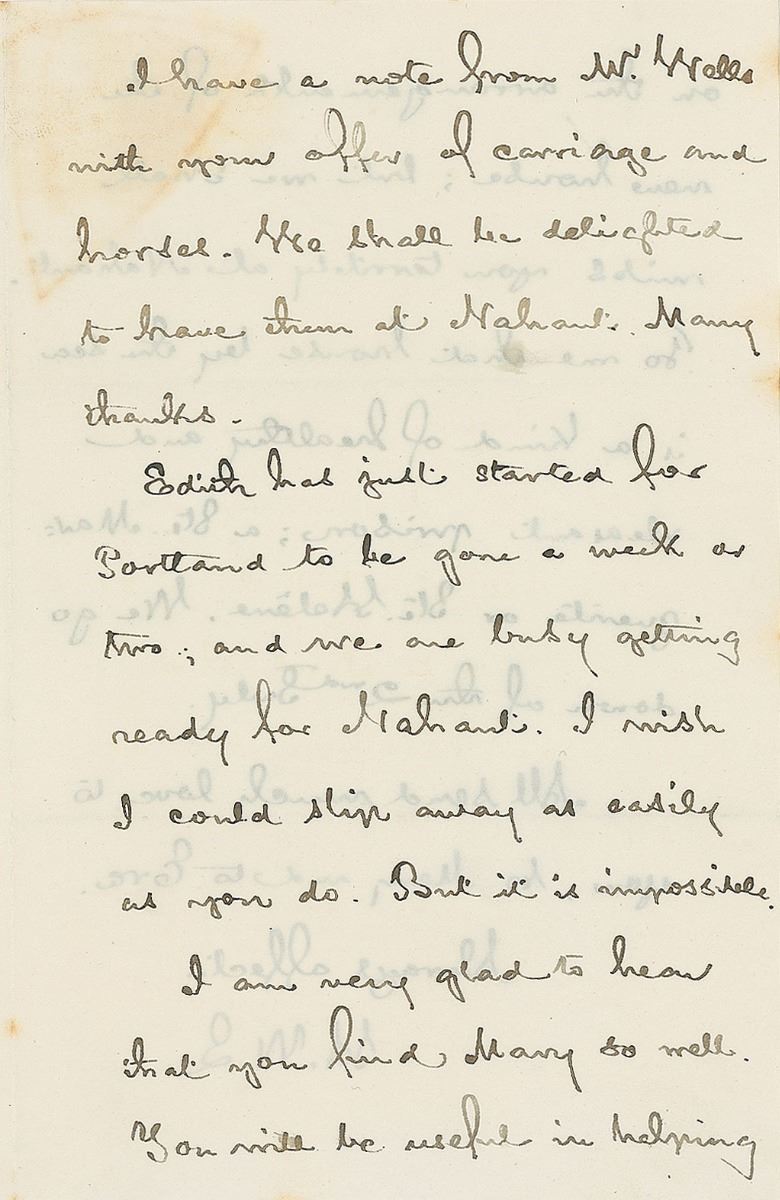 I have a note from Mr. Wells
with your offer of carriage and
horses. We shall be delighted
to have them at Nahant. Many
thanks.
Edith has just started for
Portland to be gone a week or
two; and we are busy getting
ready for Nahant. I wish
I could slip away as easily
as you do. But it is impossible.
I am very glad to hear
that you find Mary so well.
You will be useful in helping